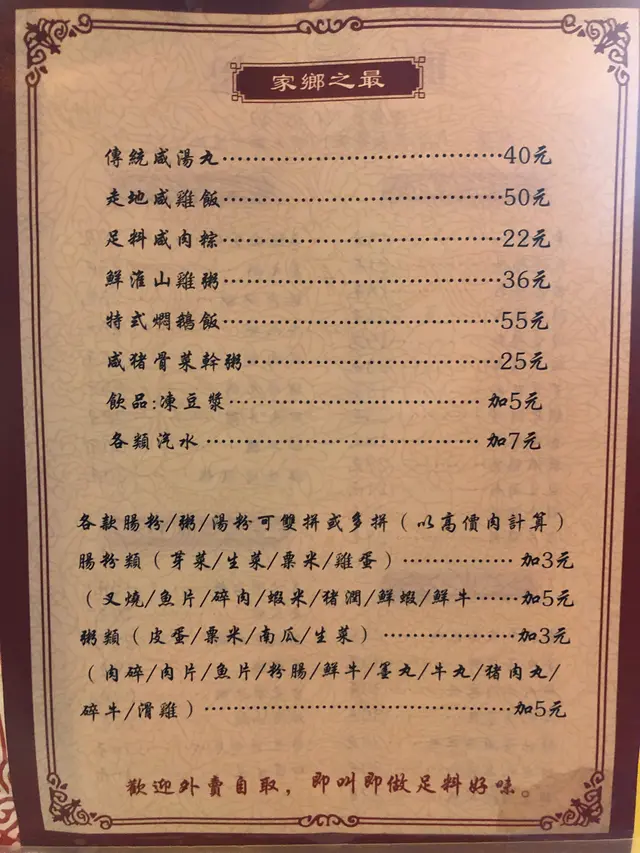 家鄉之最
傳統咸湯丸……………………………40元
走地咸雞飯……………………………50元
足料咸肉粽……………………………22元
鮮淮山雞粥……………………………36元
特式燜鵝飯……………………………55元
咸猪骨菜幹粥…………………………25元
飲品:凍豆漿…………………………加5元
各類汽水……………………………加7元
各款腸粉/粥/湯粉可雙拼或多拼（以高價肉計算）
腸粉類（芽菜/生菜/粟米/雞蛋）……………加3元
（叉燒/魚片/碎肉/蝦米/猪潤/鮮蝦/鮮牛……加5元
粥類（皮蛋/粟米/南瓜/生菜）………………加3元
（肉碎/肉片/魚片/粉腸/鮮牛/墨丸/牛丸/猪肉丸/
碎牛/滑雞）……………………………加5元
歡迎外賣自取，即叫即做足料好味。